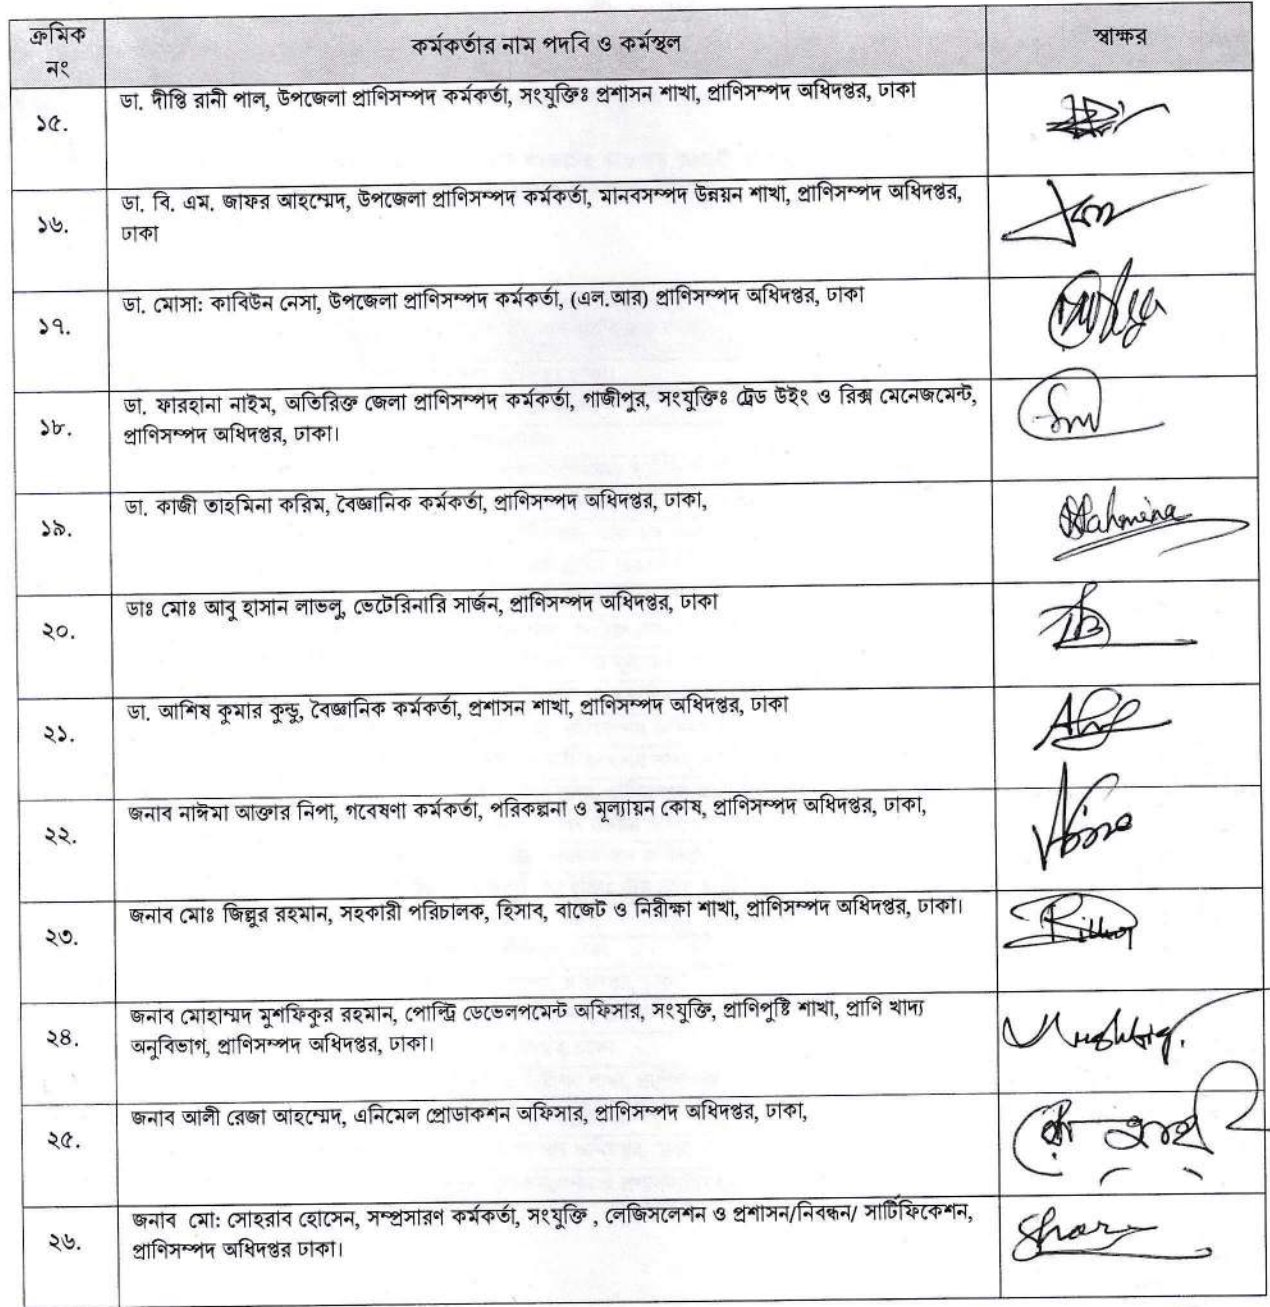 ক্রমিক
নং
কর্মকর্তার নাম পদবি ও কর্মস্থল
স্বাক্ষর
১৫.
ডা. দীপ্তি রানী পাল, উপজেলা প্রাণিসম্পদ কর্মকর্তা, সংযুক্তিঃ প্রশাসন শাখা, প্রাণিসম্পদ অধিদপ্তর, ঢাকা
১৬.
ডা. বি. এম. জাফর আহম্মেদ, উপজেলা প্রাণিসম্পদ কর্মকর্তা, মানবসম্পদ উন্নয়ন শাখা, প্রাণিসম্পদ অধিদপ্তর,
ঢাকা
১৭.
ডা. মোসা: কাবিউন নেসা, উপজেলা প্রাণিসম্পদ কর্মকর্তা, (এল.আর) প্রাণিসম্পদ অধিদপ্তর, ঢাকা
১৮.
ডা. ফারহানা নাইম, অতিরিক্ত জেলা প্রাণিসম্পদ কর্মকর্তা, গাজীপুর, সংযুক্তিঃ ট্রেড উইং ও রিক্স মেনেজমেন্ট,
প্রাণিসম্পদ অধিদপ্তর, ঢাকা।
১৯.
ডা. কাজী তাহমিনা করিম, বৈজ্ঞানিক কর্মকর্তা, প্রাণিসম্পদ অধিদপ্তর, ঢাকা,
২০.
ডাঃ মোঃ আবু হাসান লাভলু, ভেটেরিনারি সার্জন, প্রাণিসম্পদ অধিদপ্তর, ঢাকা
২১.
ডা. আশিষ কুমার কুন্ডু, বৈজ্ঞানিক কর্মকর্তা, প্রশাসন শাখা, প্রাণিসম্পদ অধিদপ্তর, ঢাকা
২২.
জনাব নাঈমা আক্তার নিপা, গবেষণা কর্মকর্তা, পরিকল্পনা ও মূল্যায়ন কোষ, প্রাণিসম্পদ অধিদপ্তর, ঢাকা,
২৩.
জনাব মোঃ জিল্লুর রহমান, সহকারী পরিচালক, হিসাব, বাজেট ও নিরীক্ষা শাখা, প্রাণিসম্পদ অধিদপ্তর, ঢাকা।
২৪.
জনাব মোহাম্মদ মুশফিকুর রহমান, পোল্ট্রি ডেভেলপমেন্ট অফিসার, সংযুক্তি, প্রাণিপুষ্টি শাখা, প্রাণি খাদ্য
অনুবিভাগ, প্রাণিসম্পদ অধিদপ্তর, ঢাকা।
২৫.
জনাব আলী রেজা আহম্মেদ, এনিমেল প্রোডাকশন অফিসার, প্রাণিসম্পদ অধিদপ্তর, ঢাকা,
২৬.
জনাব মো: সোহরাব হোসেন, সম্প্রসারণ কর্মকর্তা, সংযুক্তি , লেজিসলেশন ও প্রশাসন/নিবন্ধন/ সার্টিফিকেশন,
প্রাণিসম্পদ অধিদপ্তর ঢাকা।